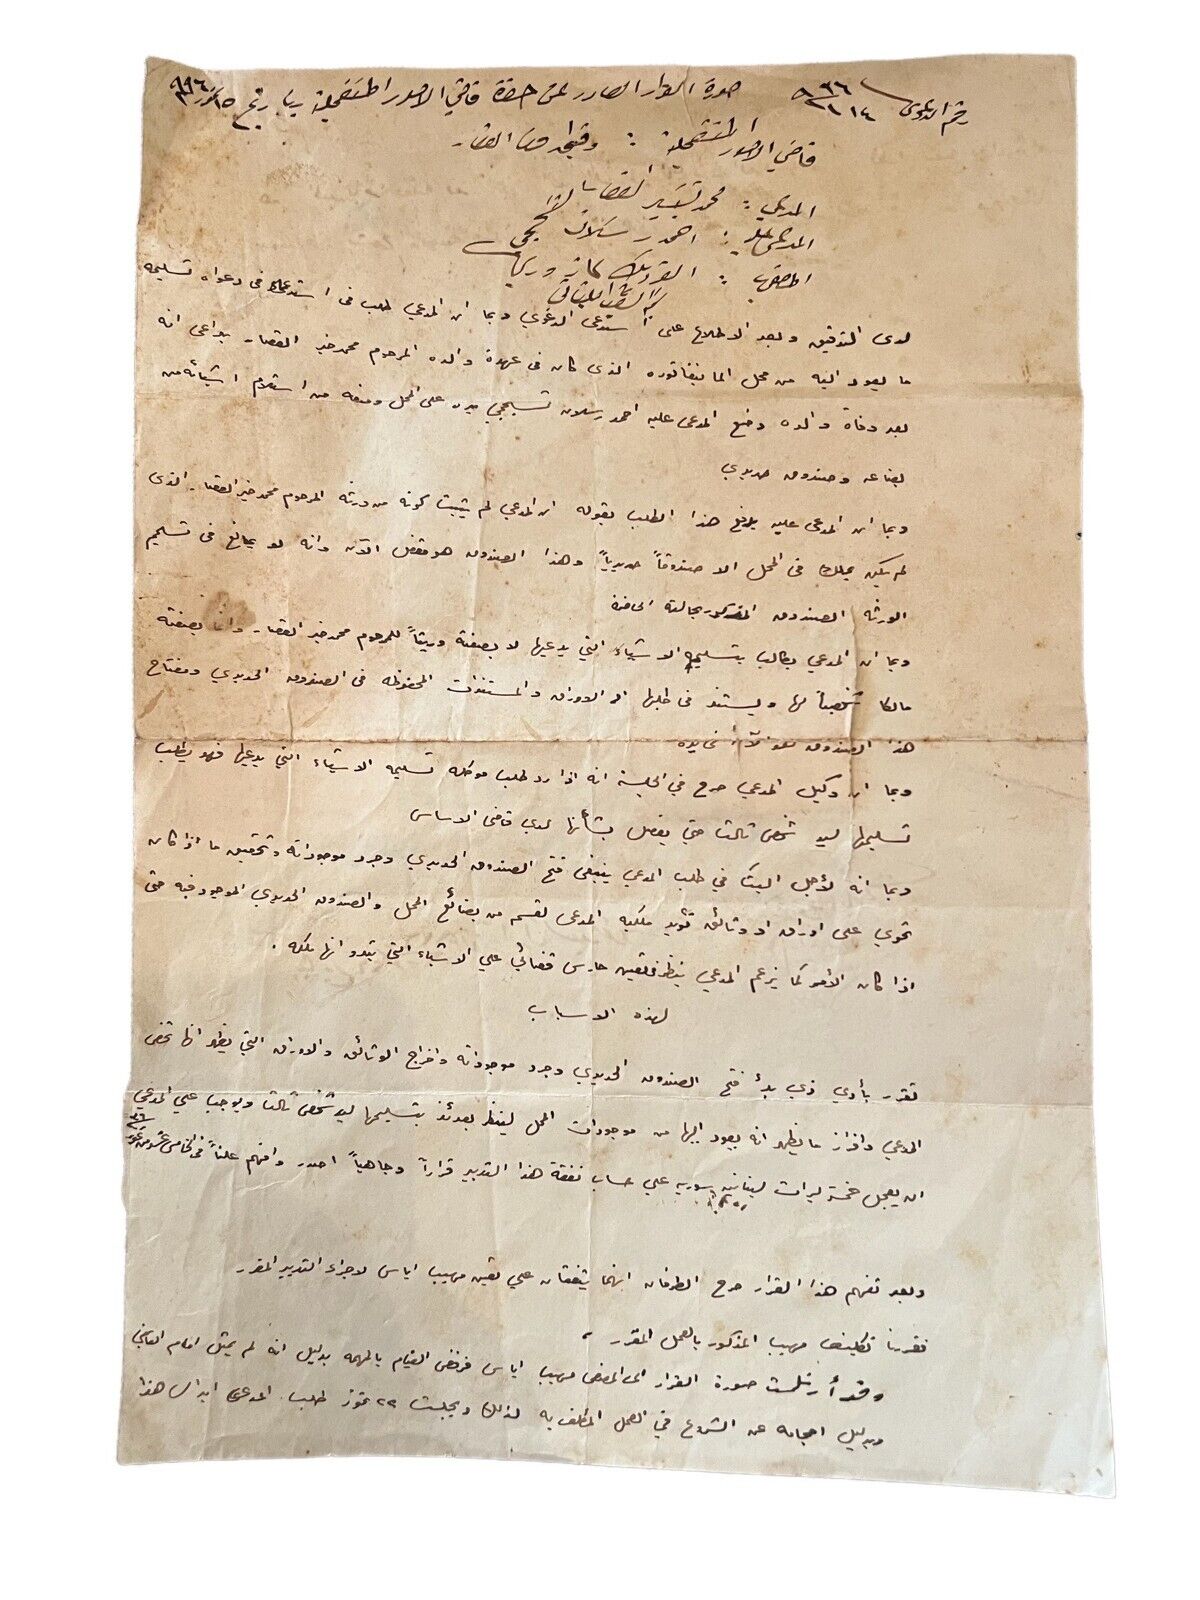 رقم الدعوى ٩٣٦ / ٢١١٤ صورة القرار الصادر عن حضرة قاضي الامور المستعجلة بتاريخ ١٥ تموز ٩٣٦
قاضي الامور المستعجلة :
المدعي : محمد تيسير القصار
المدعى عليه : احمد رسلان
لدى التدقيق وبعد الاطلاع على استدعى الدعوى وبما ان المدعي طلب فى استدعاء فى دعواه تسليمه
ما يعود اليه من محل المانيفاتوره الذى كان فى عهدة والده المرحوم محمد خير القصار بداعى انه
بعد وفاة والده وضع المدعى عليه احمد رسلان يده على المحل ومنعه من استلام اشيائه من
بضاعه وصندوق حديدي
وبما ان المدعى عليه يدفع هذا الطلب بقوله ان المدعي لم يثبت كونه من ورثة المرحوم محمد خير القصار الذى
لم يكن يملك فى المحل الا صندوقاً حديدياً وهذا الصندوق هو مقفل الآن وانه لا يمانع فى تسليم
الورثه الصندوق المذكور بحالته الحاضرة
وبما ان المدعي يطالب بتسليمه الاشياء التي يدعيها لا بصفته وريثاً للمرحوم محمد خير القصار وانما بصفته
مالكا شخصياً لها ويستند فى طلبها الى الاوراق والمستندات المحفوظه فى الصندوق الحديدي ومفتاح
هذا الصندوق
وبما ان وكيل المدعي صرح في الجلسة انه اذا رد طلب موكله تسليمه الاشياء التي يدعيها فهو يطلب
تسليمها ليد شخص ثالث حتى يفصل بشأنها لدى قاضى الاساس
وبما انه لأجل البت في طلب المدعي ينبغى فتح الصندوق الحديدي وجرد موجوداته وتحقيق ما اذا كان
تحوي على اوراق او وثائق تؤيد ملكيه المدعى لقسم من بضائع المحل والصندوق الحديدي الموجود فيه حتى
اذا كان الأمر كما يزعم المدعي ينظر فى تعيين حارس قضائي على الاشياء التي تبدو انها ملكه .
لهذه الاسباب
تقرر بأدى ذي بدء فتح الصندوق الحديدي وجرد موجوداته واخراج الوثائق والاوراق التي يظهر انها تخص
المدعي وافراز ما يظهر انه يعود اليها من موجودات المحل لينظر بعدئذ بتسليمها ليد شخص ثالث ويوجب على المدعي
ان يعجل خمسة ليرات لبنانيه سوريه على حساب نفقة هذا التدبير قراراً وجاهياً اصدر وافهم علناً فى الخامس عشر من تموز ٩٣٦
وبعد تفهم هذا القرار صرح الطرفان انهما يتفقان على تعين مهيب اياس لاجراء التدبير المقرر
فقررنا تكليف مهيب المذكور بالعمل المقرر ،
وقد أرسلت صورة القرار الى مهيب اياس فرفض القيام بالمهمه بدليل انه لم يمثل امام القاضي
وبدليل احجامه عن الشروع في العمل المكلف به لذلك وبجلسة ٢٢ تموز طلب المدعى ابدال هذا